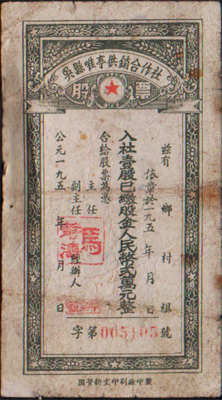 吳縣唯亭供銷合作社
股票
茲有 鄉 村 組
依章於一九五 年 月 日
入社壹股已繳股金人民幣弍萬元整
合給股票為憑
主任
副主任
經辦人
公元一九五 年 月 日
字第005105號